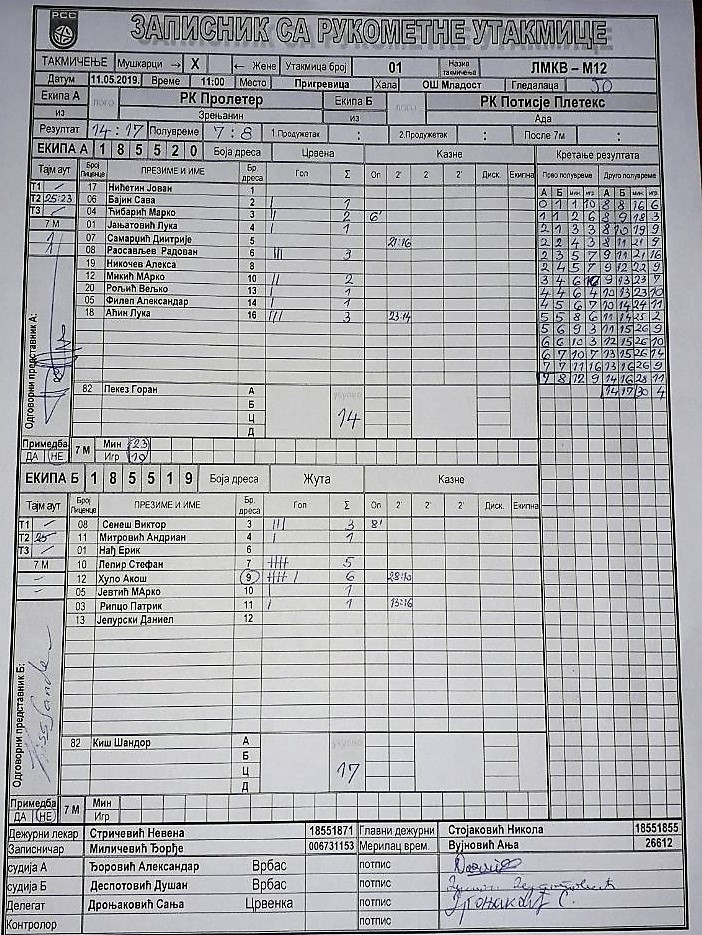 РСС
ЗАПИСНИК СА РУКОМЕТНЕ УТАКМИЦЕ
ТАКМИЧЕЊЕ Мушкарци → X ← Жене Утакмица број 01 Назив такмичења ЛМКВ – М12
Датум 11.05.2019. Време 11:00 Место Пригревица Хала ОШ Младост Гледалаца 50
Екипа А ЛОГО РК Пролетер Екипа Б ЛОГО РК Потисје Плетекс
из Зрењанин из Ада
Резултат 14 : 17 Полувреме 7 : 8 1.Продужетак : 2.Продужетак : После 7м :
ЕКИПА А 1 8 5 5 2 0 Боја дреса Црвена Казне Кретање резултата
Тајм аут Број Лиценце ПРЕЗИМЕ И ИМЕ Бр. дреса Гол Σ Оп 2' 2' 2' Диск. Екипна Прво полувреме Друго полувреме
А Б мин. игр А Б мин. игр
Т1 / 17 Нићетин Јован 1
Т2 25:23 06 Бајин Сава 2 / 1 0 1 1 10 8 8 16 6
Т3 / 04 Ћибарић Марко 3 // 2 6' 1 1 2 6 8 9 18 3
7 М 01 Јањатовић Лука 4 / 1 2 1 3 3 8 10 19 9
07 Самарџић Дмитрије 5 21:16 2 2 4 3 8 11 21 9
08 Раосављев Радован 6 /// 3 2 3 5 7 9 11 21 16
19 Никочев Алекса 8 2 4 5 7 9 12 22 9
12 Микић МАрко 10 // 2 3 4 6 9 13 23 7
20 Рољић Вељко 13 / 1 4 4 6 4 10 13 23 10
05 Филеп Александар 14 / 1 4 5 6 7 10 14 24 11
18 Аћин Лука 16 /// 3 23:14 5 5 8 6 11 14 25 2
5 6 9 3 11 15 26 9
6 6 10 3 12 15 26 10
6 7 10 7 13 15 26 14
7 7 11 16 13 16 26 9
7 8 12 9 14 16 28 11
14 17 30 4
Одговорни представник А:
82 Пекез Горан А
Б
Ц 14
Д
Примедба ДА НЕ 7 М Мин 23
Игр 10
ЕКИПА Б 1 8 5 5 1 9 Боја дреса Жута Казне
Тајм аут Број Лиценце ПРЕЗИМЕ И ИМЕ Бр. дреса Гол Σ Оп 2' 2' 2' Диск. Екипна
Т1 / 08 Сенеш Виктор 3 /// 3 8'
Т2 25 11 Митровић Андриан 4 / 1
Т3 / 01 Нађ Ерик 6
7 М 10 Лепир Стефан 7 //// 5
12 Хуло Акош 9 //// / 6 28:10
05 Јевтић МАрко 10 / 1
03 Рипцо Патрик 11 / 1 13:16
13 Јепурски Даниел 12
Одговорни представник Б:
82 Киш Шандор А
Б
Ц 17
Д
Примедба ДА НЕ 7 М Мин
Игр
Дежурни лекар Стричевић Невена 18551871 Главни дежурни Стојаковић Никола 18551855
Записничар Миличевић Ђорђе 006731153 Мерилац врем. Вујновић Ања 26612
судија А Ђоровић Александар Врбас потпис
судија Б Деспотовић Душан Врбас потпис
Делегат Дроњаковић Сања Црвенка потпис Дроњаковић С.
Контролор потпис